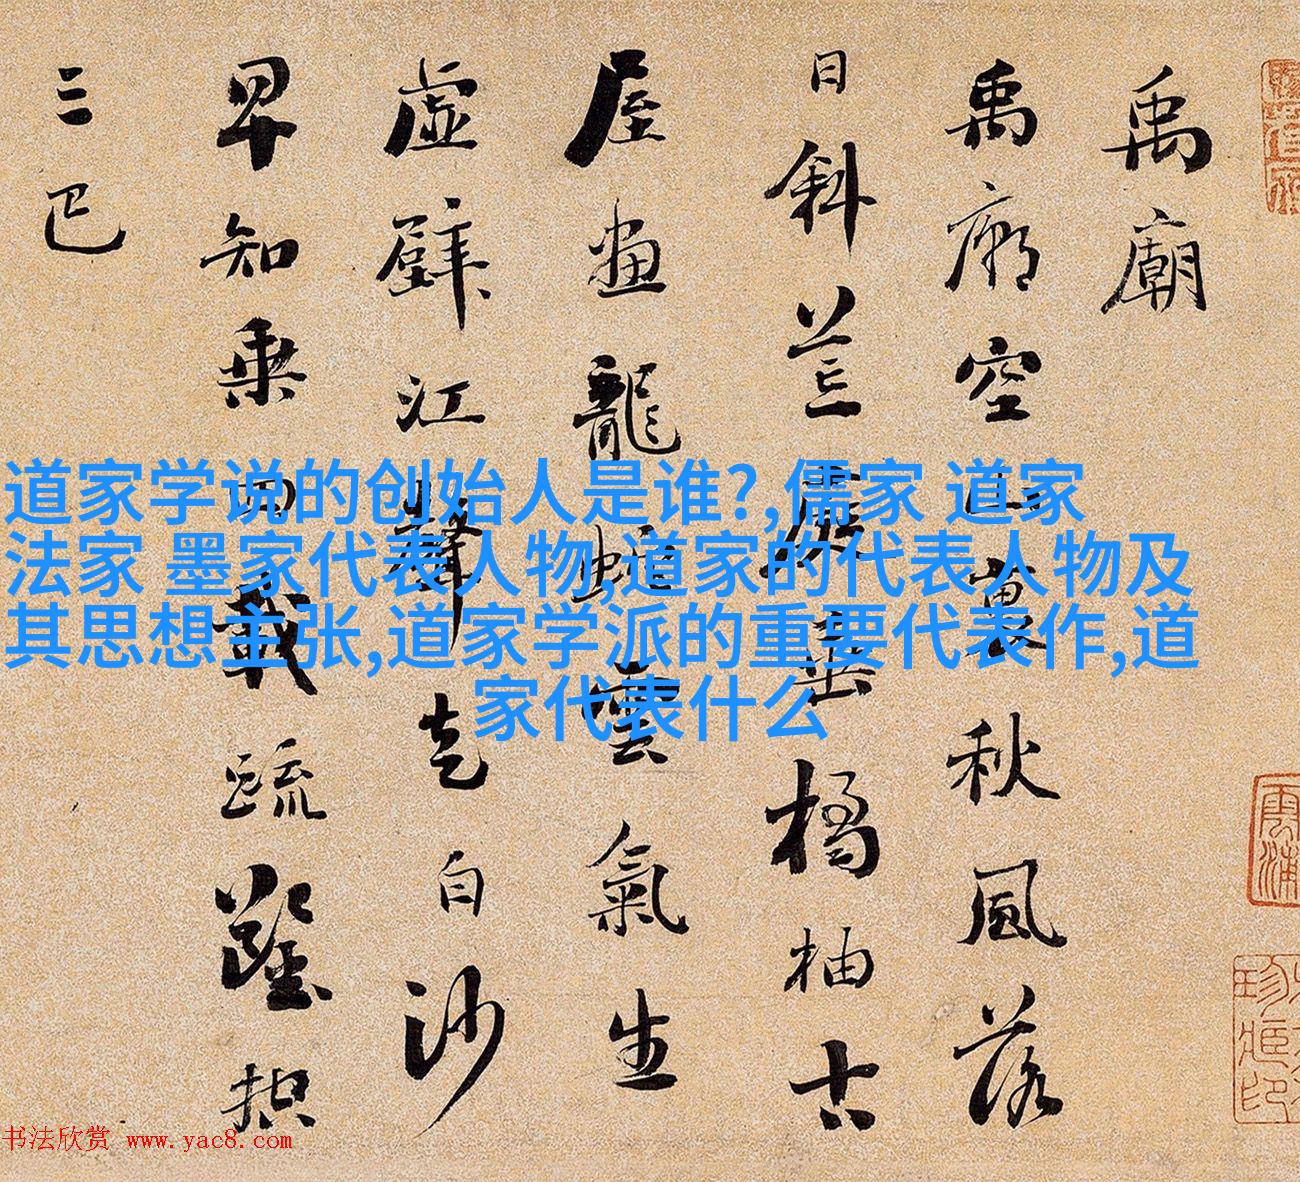 禹廟
禹廟空山裏秋風落
日斜荒庭垂橘柚古
屋畫龍蛇雲氣生
虛壁江聲走白沙
早知乘四載疏鑿控
三巴
道家学说的创始人是谁?,儒家 道家
法家 墨家代表人物,道家的代表人物及
其思想主张,道家学派的重要代表作,道
家代表什么
书法欣赏 www.yac8.com